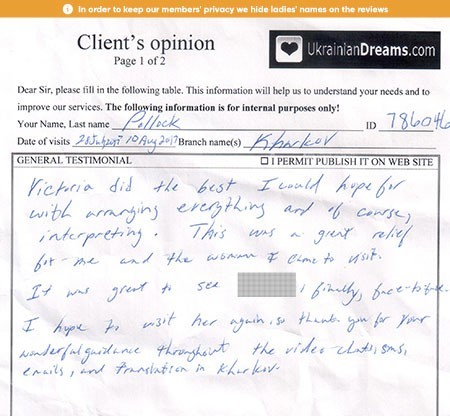 In order to keep our members' privacy we hide ladies' names on the reviews
Client's opinion
Page 1 of 2
UkrainianDreams.com
Dear Sir, please fill in the following table. This information will help us to understand your needs and to
improve our services. The following information is for internal purposes only!
Your Name, Last name Pollock ID 786046
Date of visits 28July2017 10Aug2017 Branch name(s) Kharkov
GENERAL TESTIMONIAL I PERMIT PUBLISH IT ON WEB SITE
Victoria did the best I could hope for
with arranging everything and of course,
interpreting. This was a great relief
for me and the woman I came to visit.
It was great to see , finally, face-to-face.
I hope to visit her again, so thank you for your
wonderful guidance throughout the video chats, sms,
emails, and translation in Kharkov.